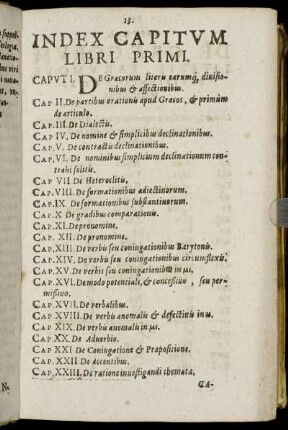 13.
INDEX CAPITVM
LIBRI PRIMI.
CAPVT I. DE Græcorum literis earumq; divisio-
nibus & affectionibus.
CAP II. De partibus orationis apud Græcos, & primùm
de articulo.
CAP. III. De Dialectis.
CAP IV. De nomine & simplicibus declinationibus.
CAP. V. De contractis declinationibus.
CAP. VI. De nominibus simplicium declinationum con-
trahi solitis.
CAP VII De Heteroclitis,
CAP. VIII. De formationibus adiectivorum.
CAP. IX De formationibus substantivorum.
CAP. X De gradibus comparationis.
CAP. XI. De pronomine,
CAP. XII. De pronomine.
CAP. XIII. De verbis seu coniugationibus Barytonis.
CAP. XIV. De verbis seu coniugationibus circumflexis.
CAP. XV. De verbis seu coniugationibus in μι.
CAP. XVI. De modo potentiali, & concessivo, seu per-
missivo.
CAP. XVII. De verbalibus.
CAP. XVIII. De verbis anomalis & defectivis in ω.
CAP XIX. De verbis anomalis in μι.
CAP. XX. De Adverbio.
CAP. XXI De Coniugatione & Præpositione.
CAP. XXII De Accentibus.
CAP. XXIII. De ratione investigandi themata,
CA-